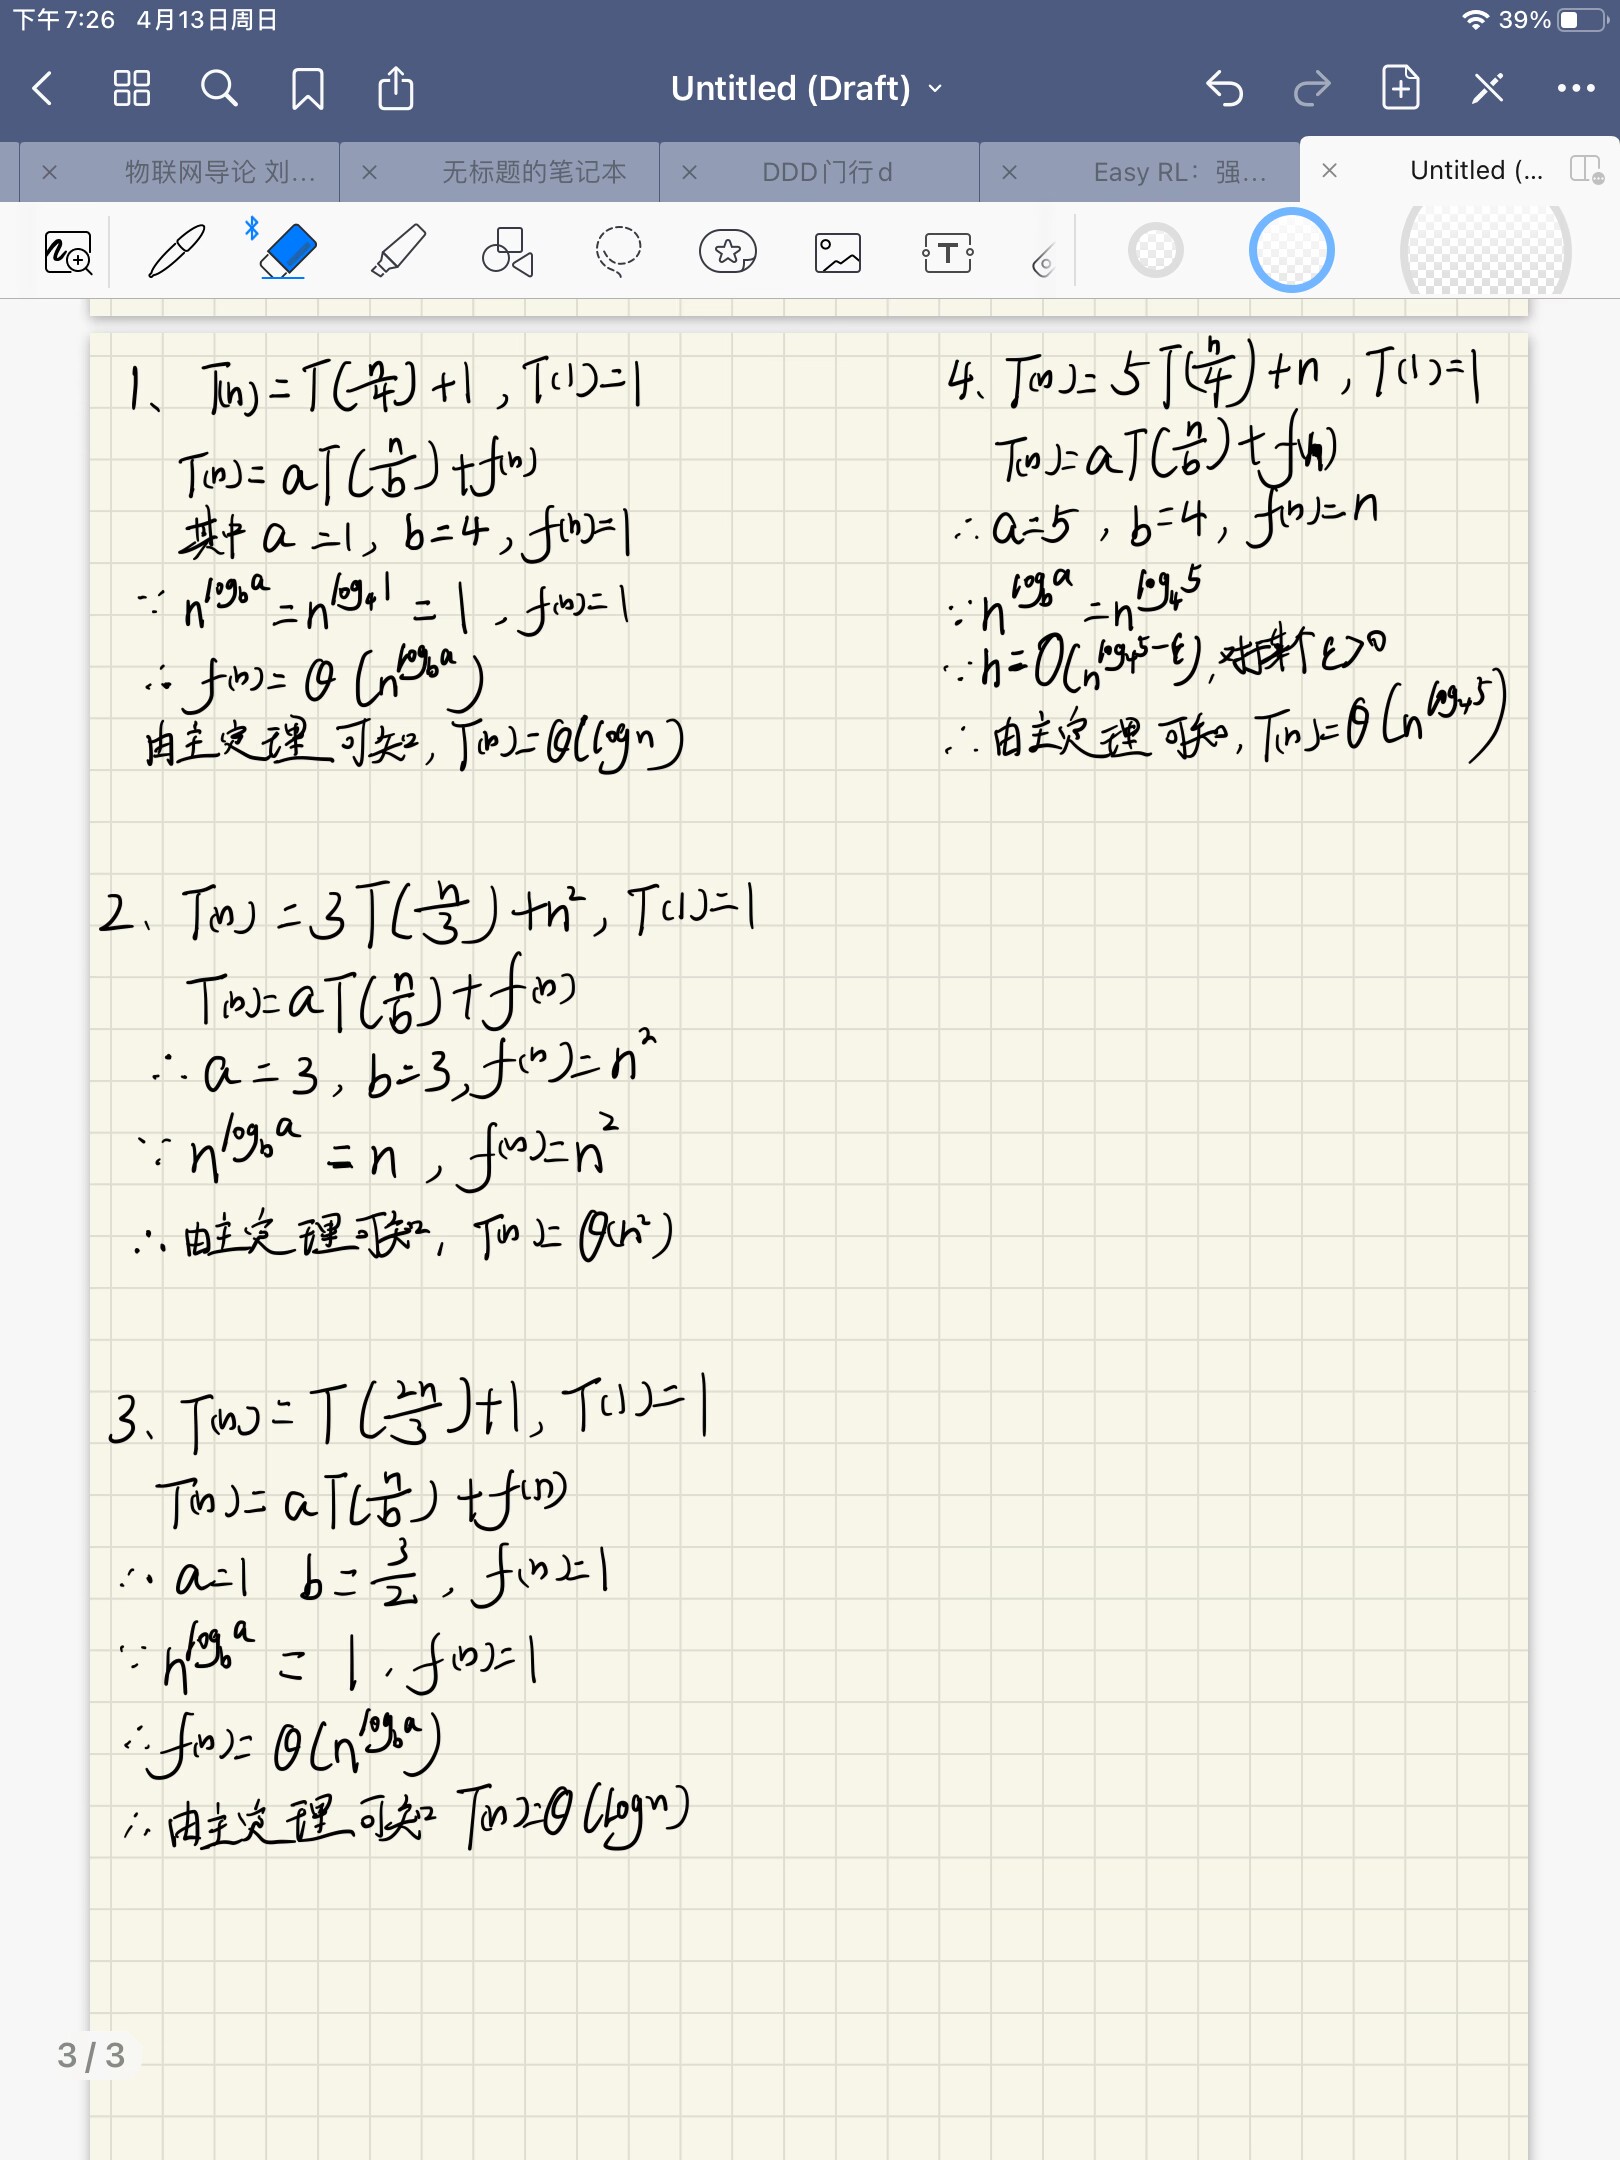 下午7:26 4月13日周日
39%
Untitled (Draft)
物联网导论 刘...
无标题的笔记本
DDD门行d
Easy RL：强...
Untitled (...
1、 T(n)=T(n/4)+1, T(1)=1
T(n)=aT(n/b)+f(n)
其中 a=1, b=4, f(n)=1
∵ n^{log_b a}=n^{log_4 1}=1, f(n)=1
∴ f(n)=Θ(n^{log_b a})
由主定理可知, T(n)=Θ(logn)
2、 T(n)=3T(n/3)+n², T(1)=1
T(n)=aT(n/b)+f(n)
∴ a=3, b=3, f(n)=n²
∵ n^{log_b a}=n, f(n)=n²
∴ 由主定理可知, T(n)=Θ(n²)
3、 T(n)=T(2n/3)+1, T(1)=1
T(n)=aT(n/b)+f(n)
∴ a=1 b=3/2, f(n)=1
∵ n^{log_b a}=1, f(n)=1
∴ f(n)=Θ(n^{log_b a})
∴ 由主定理可知 T(n)=Θ(logn)
4、 T(n)=5T(n/4)+n, T(1)=1
T(n)=aT(n/b)+f(n)
∴ a=5, b=4, f(n)=n
∵ n^{log_b a}=n^{log_4 5}
∵ n=O(n^{log_4 5-ε}), 对某个ε>0
∴ 由主定理可知, T(n)=Θ(n^{log_4 5})
3 / 3